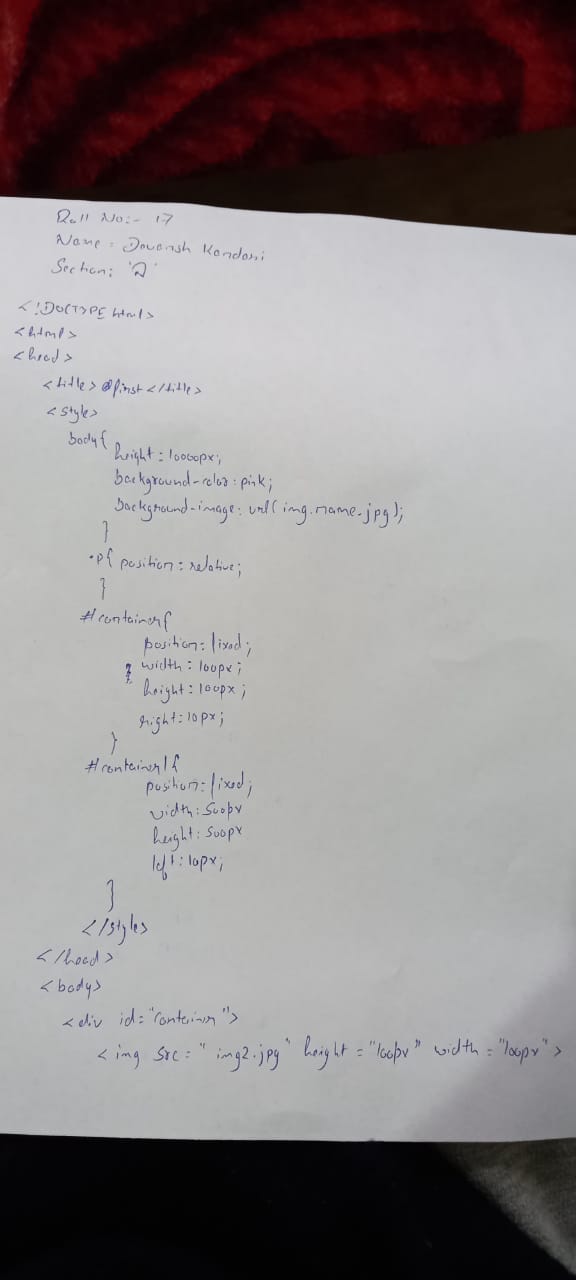 Roll No:- 17
Name : Devansh Kandari
Section: 'D'
<!DOCTYPE html>
<html>
<head>
<title> first </title>
<style>
body{
height: 10000px;
background-color: pink;
background-image: url( img.name.jpg);
}
.p{ position: relative;
}
#container{
position: fixed;
width: 100px;
height: 100px;
right: 10px;
}
#container1{
position: fixed;
width: 500px
height: 500px
left: 10px;
}
</style>
</head>
<body>
<div id="container">
<img src = " img2.jpg" height = "100px" width = "100px">